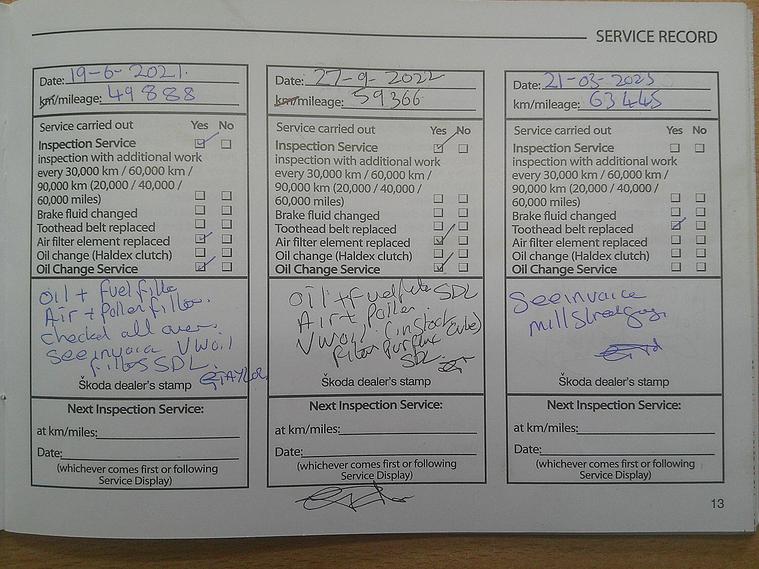 SERVICE RECORD
Date: 19-6-2021.
km/mileage: 49888
Service carried out Yes No
Inspection Service
inspection with additional work
every 30,000 km / 60,000 km /
90,000 km (20,000 / 40,000 /
60,000 miles)
Brake fluid changed
Toothed belt replaced
Air filter element replaced
Oil change (Haldex clutch)
Oil Change Service
Oil + Fuel filte
Air + Pollen filter.
checked all over.
see invoice VW oil
filters SDL.
Škoda dealer's stamp GTAYLOR
Next Inspection Service:
at km/miles:
Date:
(whichever comes first or following
Service Display)
Date: 27-9-2022
km/mileage: 59366
Service carried out Yes No
Inspection Service
inspection with additional work
every 30,000 km / 60,000 km /
90,000 km (20,000 / 40,000 /
60,000 miles)
Brake fluid changed
Toothed belt replaced
Air filter element replaced
Oil change (Haldex clutch)
Oil Change Service
Oil + Fuel SDL
Air + Pollen
VW oil (in stock
SDL
Škoda dealer's stamp
Next Inspection Service:
at km/miles:
Date:
(whichever comes first or following
Service Display)
Date: 21-03-2023
km/mileage: 63445
Service carried out Yes No
Inspection Service
inspection with additional work
every 30,000 km / 60,000 km /
90,000 km (20,000 / 40,000 /
60,000 miles)
Brake fluid changed
Toothed belt replaced
Air filter element replaced
Oil change (Haldex clutch)
Oil Change Service
See invoice
Škoda dealer's stamp
Next Inspection Service:
at km/miles:
Date:
(whichever comes first or following
Service Display)
13